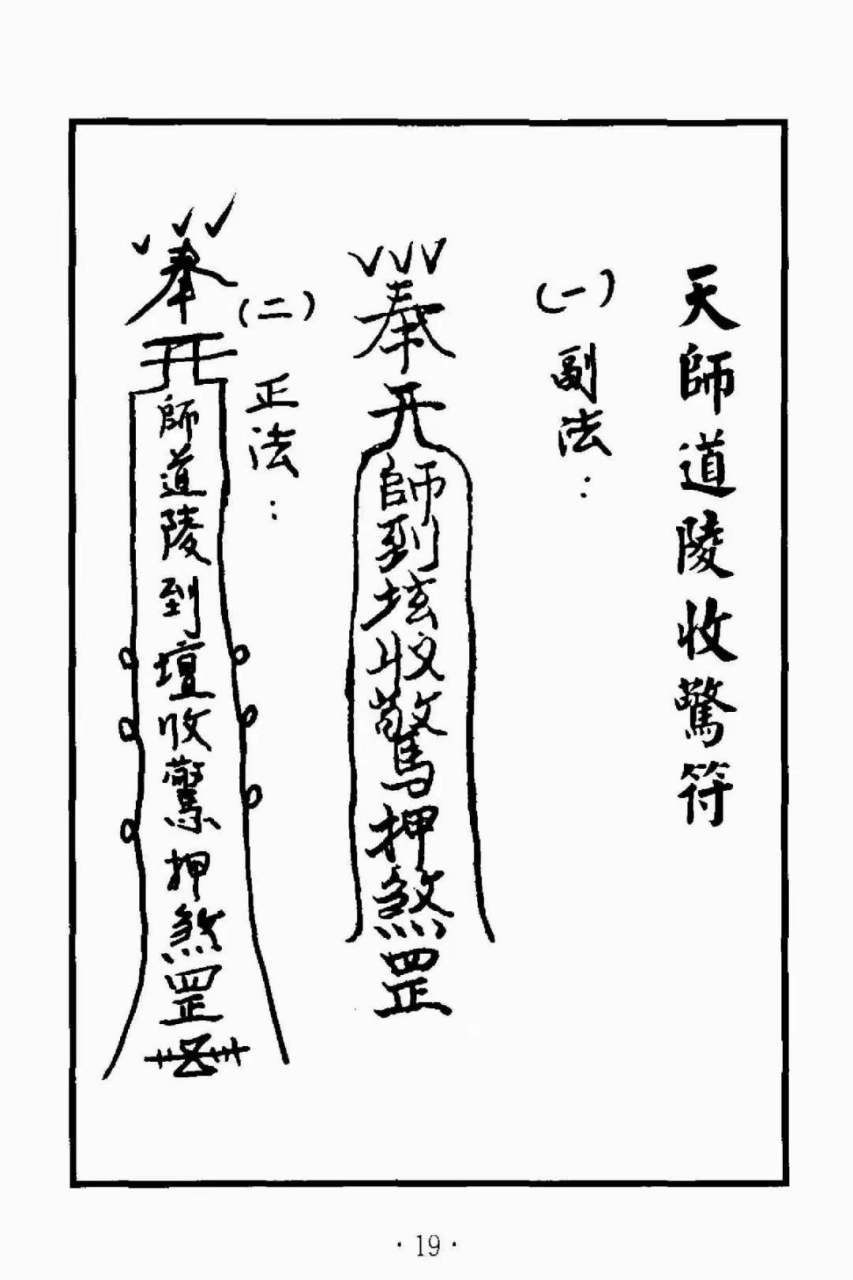 天師道陵收驚符
(一)副法：
奉
天師到壇收驚押煞罡
(二)正法：
奉
天師道陵到壇收驚押煞罡
·19·